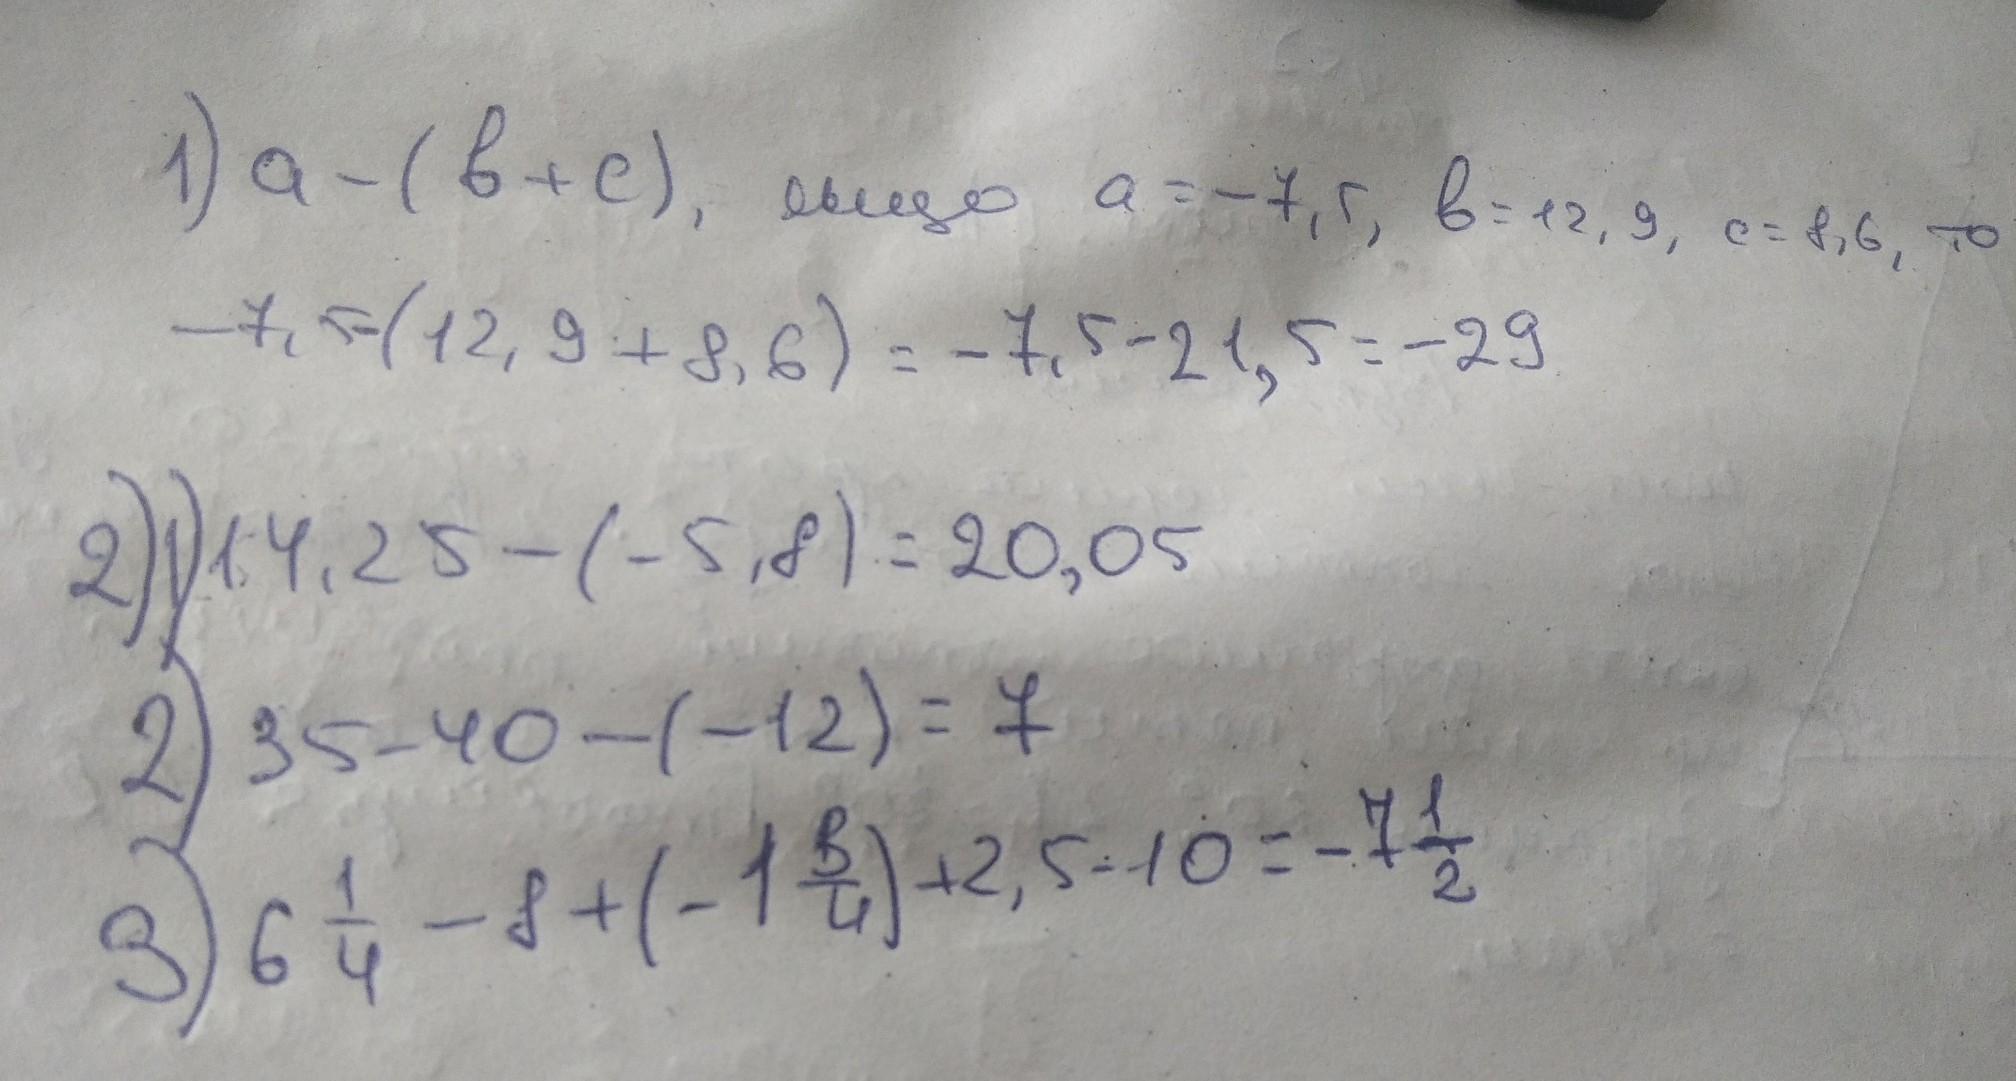 1) a - (в + c), якщо a = -7,5, в = 12,9, c = 8,6, то
-7,5 - (12,9 + 8,6) = -7,5 - 21,5 = -29
2) 1) 14,25 - (-5,8) = 20,05
2) 35 - 40 - (-12) = 7
3) 6 1/4 - 8 + (-1 3/4) + 2,5 - 10 = -7 1/2